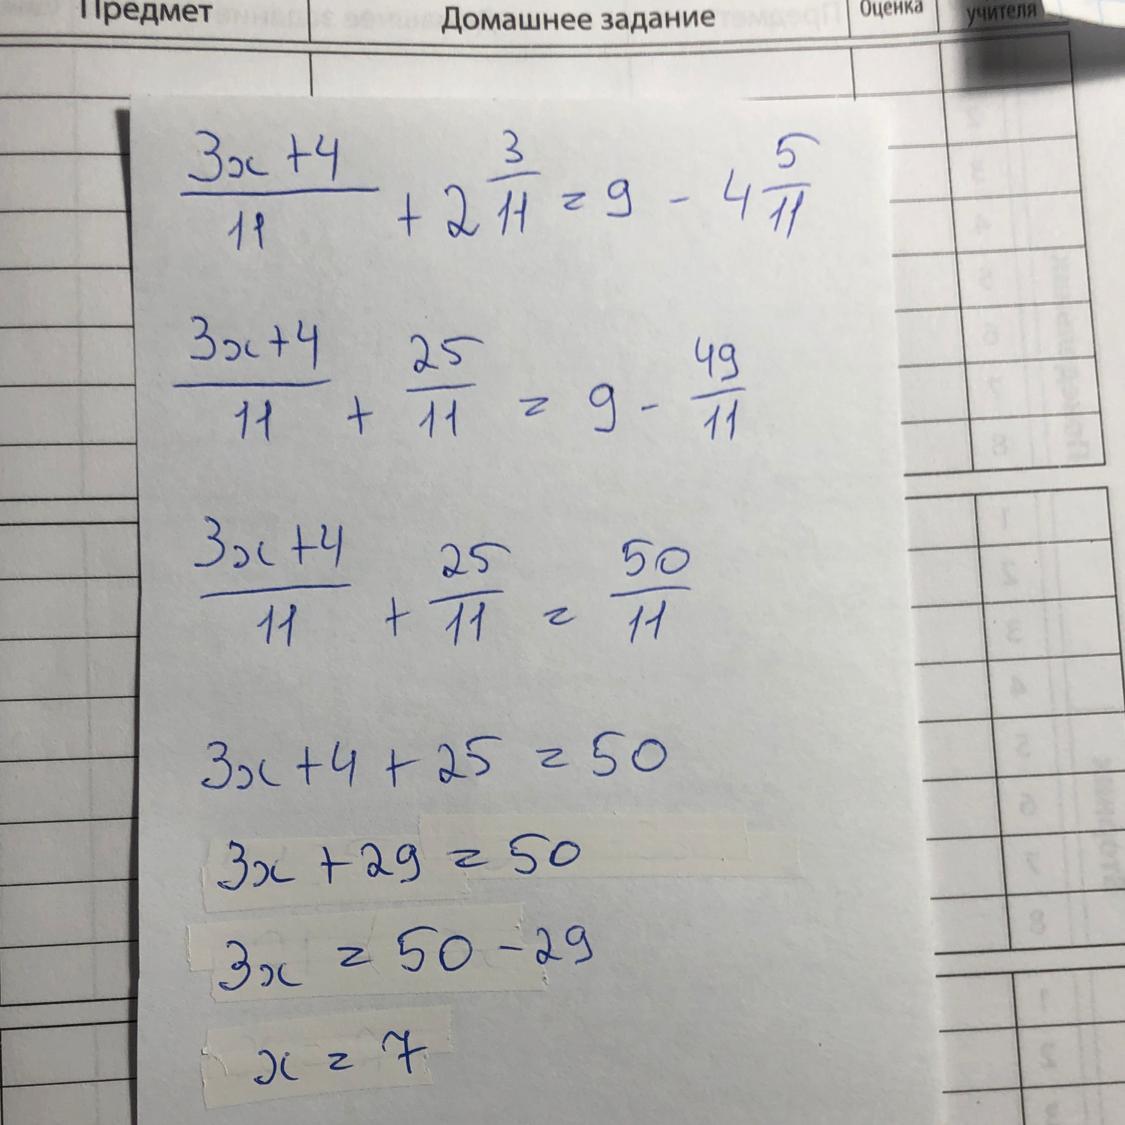 Предмет Домашнее задание Оценка учителя
(3x+4)/11 + 2 3/11 = 9 - 4 5/11
(3x+4)/11 + 25/11 = 9 - 49/11
(3x+4)/11 + 25/11 = 50/11
3x+4+25=50
3x+29=50
3x=50-29
x=7